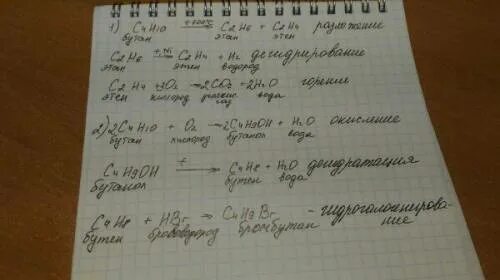 1) C4H10 t=500°C → C2H6 + C2H4 разложение
бутан этан этен
C2H6 t, Ni → C2H4 + H2 дегидрирование
этан этен водород
C2H4 + 3O2 → 2CO2 + 2H2O горение
этен кислород углекис. газ вода
2) 2C4H10 + O2 → 2C4H9OH + H2O окисление
бутан кислород бутанол вода
C4H9OH t → C4H8 + H2O дегидратация
бутанол бутен вода
C4H8 + HBr → C4H9Br - гидрогалогенирова
бутен бромоводород бромбутан ние